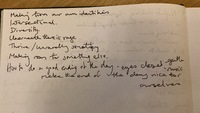 Making our own identities
Intersectional.
Diversity
Underneath there is rage
Thrive / unearthly something
Making room for something else.
How to do a good ending of the day - eyes closed - gentle
- music
makes the end of the day nice for
ourselves